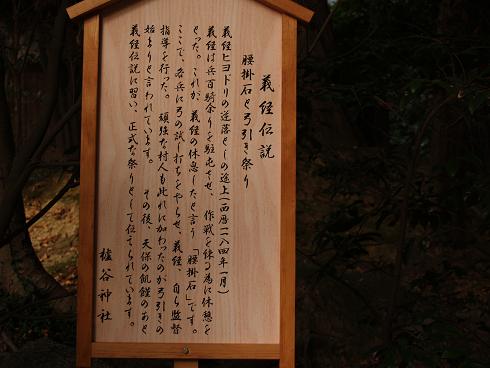 義経伝説
腰掛石と弓引き祭り
義経ヒヨドリの逆落としの途上(西暦一一八四年一月)
義経は兵百騎余りを駐屯させ、作戦を練る為に休憩を
とった。これが、義経の休息したと言う「腰掛石」です。
ここで、各兵に弓の試し打ちをやらせ、義経、自ら監督
指導を行った。頑強な村人も此れに加わったのが弓引きの
始まりと言われています。その後、天保の飢饉のあと
義経伝説に習い、正式な祭りとして伝えられています。
櫨谷神社